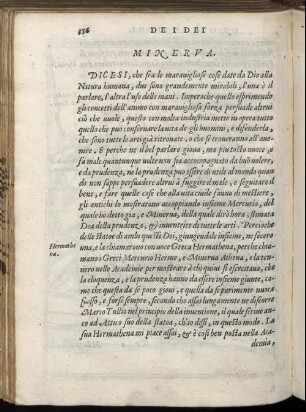 356
DE I DEI
MINERVA.
DICESI, che fra le maravigliose cose date da Dio alla
Natura humana, due sono grandemente mirabili, l'una è il
parlare, l'altra l'uso delle mani. Imperoche quello esprimendo
gli concetti dell'animo con maravigliosa forza persuade altrui
ciò che vuole, questo con molta industria mette in opera tutto
quello che può conservare la vita de gli huomini, e difenderla,
che sono tutte le arti già ritrovate, o che si troveranno all'ave-
nire. E perche ne'l bel parlare giova, ma più tosto nuoce, e
fa male quantunque volte non sia accompagnato da buõ volere,
e da prudenza, ne la prudenza può essere di utile al mondo quan
do non sappi persuadere altrui à fuggire il male, e seguitare il
bene, e far quelle cose che alla vita civile siano di mestiere,
gli antichi lo mostrarono accoppiando insieme Mercurio, del
quale hò detto già, e Minerva, della quale dirò hora, stimata
Dea della prudenza, & inventrice di tutte le arti. Percioche
de le statoe di ambi questi Dei, giungendole insieme, ne fecero
una, e la chiamarono con voce Greca Hermathena, perche chia-
mano i Greci Mercurio Herme, e Minerva Athena, e la ten-
nero nelle Academie per mostrare à chi quivi si esercitava, che
la eloquenza, e la prudenza hanno da essere insieme giunte, co-
me che questa da se poco giovi, e quella da se parimente nuoca
spesso, e forse sempre, secondo che assai lungamente ne discorre
Marco Tullio nel principio della inventione, il quale scrive anco
ad Attico sio della statoa, ch'io dissi, in questo modo. La
tua Hermathena mi piace assai, & è così ben posta nella Aca
demia,
Hermathe
na.